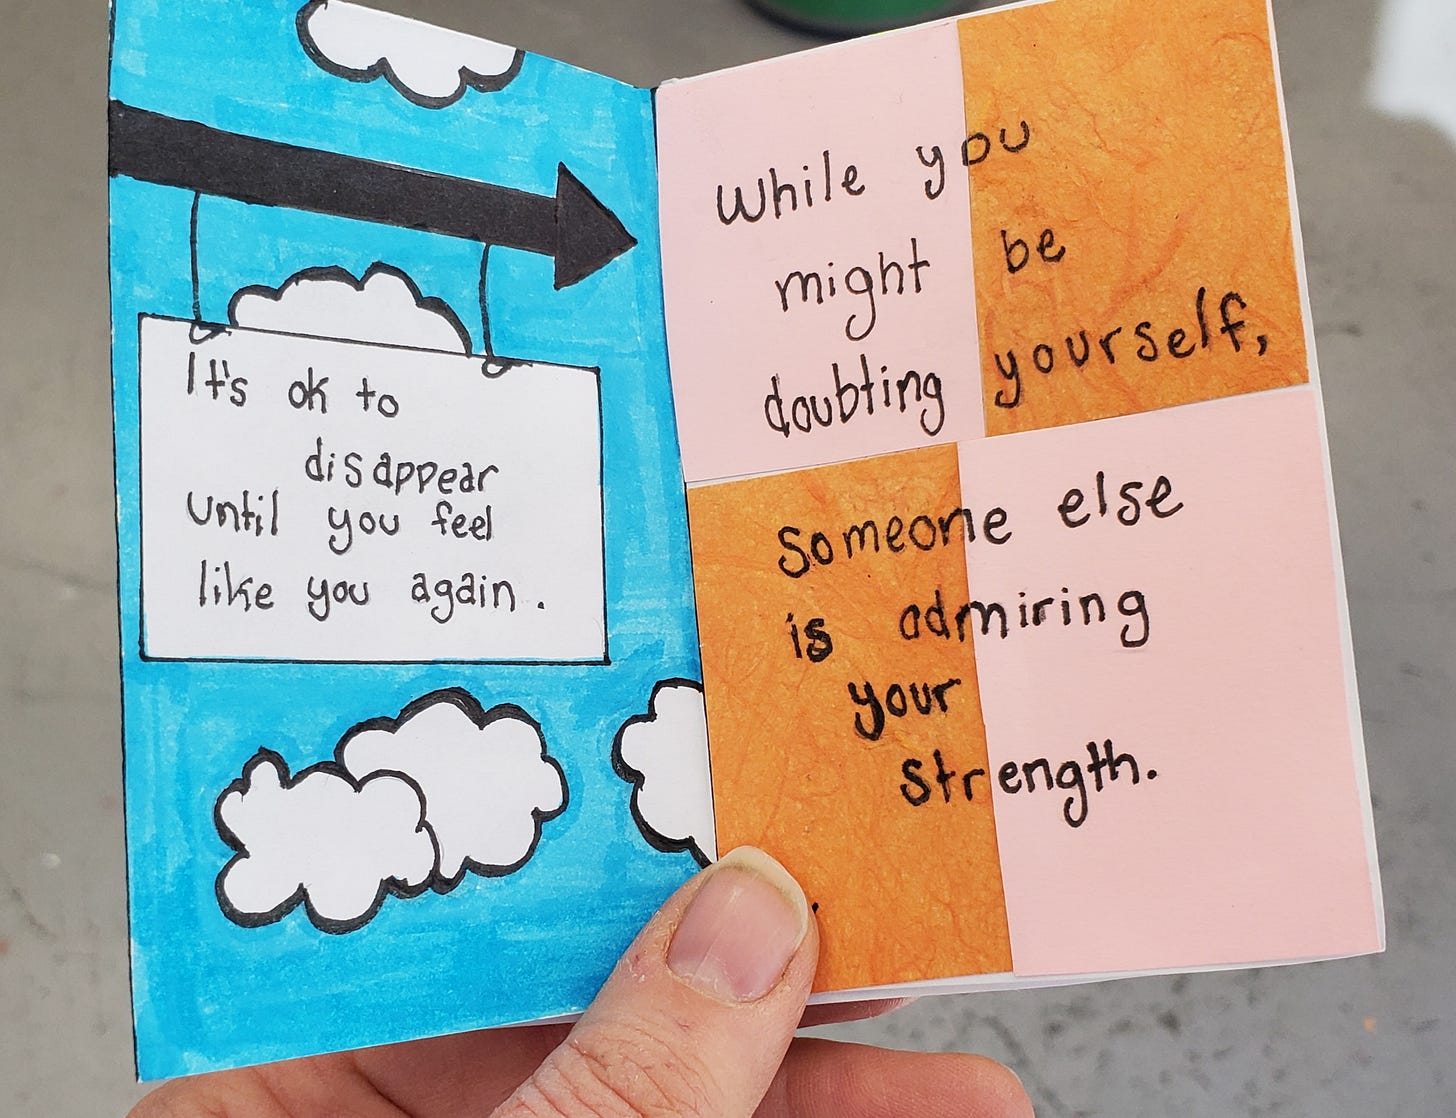 It's ok to
disappear
until you feel
like you again.
While you
might be
doubting yourself,
someone else
is admiring
your
strength.